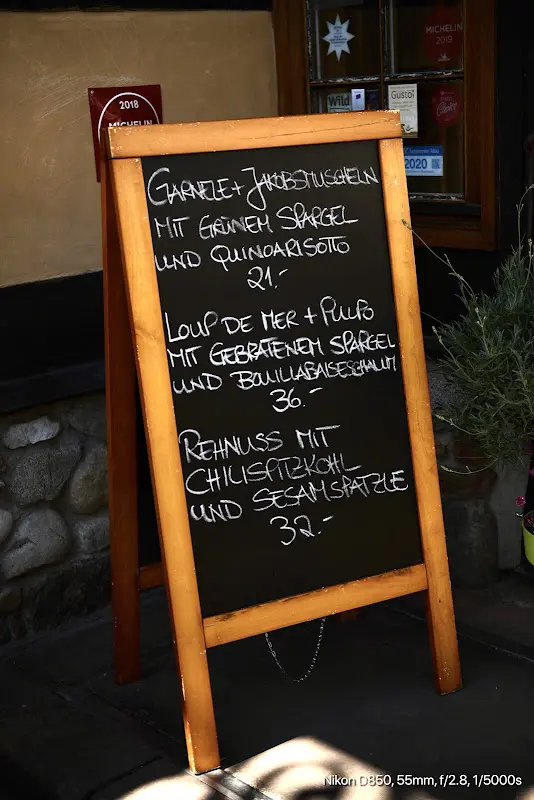 MICHELIN
2019
Wild
Gusto!
2020
2018
MICHELIN
GARNELE + JAKOBSMUSCHELN
MIT GRÜNEM SPARGEL
UND QUINOARISOTTO
21,-
LOUP DE MER + PULPO
MIT GEBRATENEM SPARGEL
UND BOUILLABAISESCHAUM
36.-
REHNUSS MIT
CHILISPITZKOHL
UND SESAMSPÄTZLE
32.-
Nikon D850, 55mm, f/2.8, 1/5000s